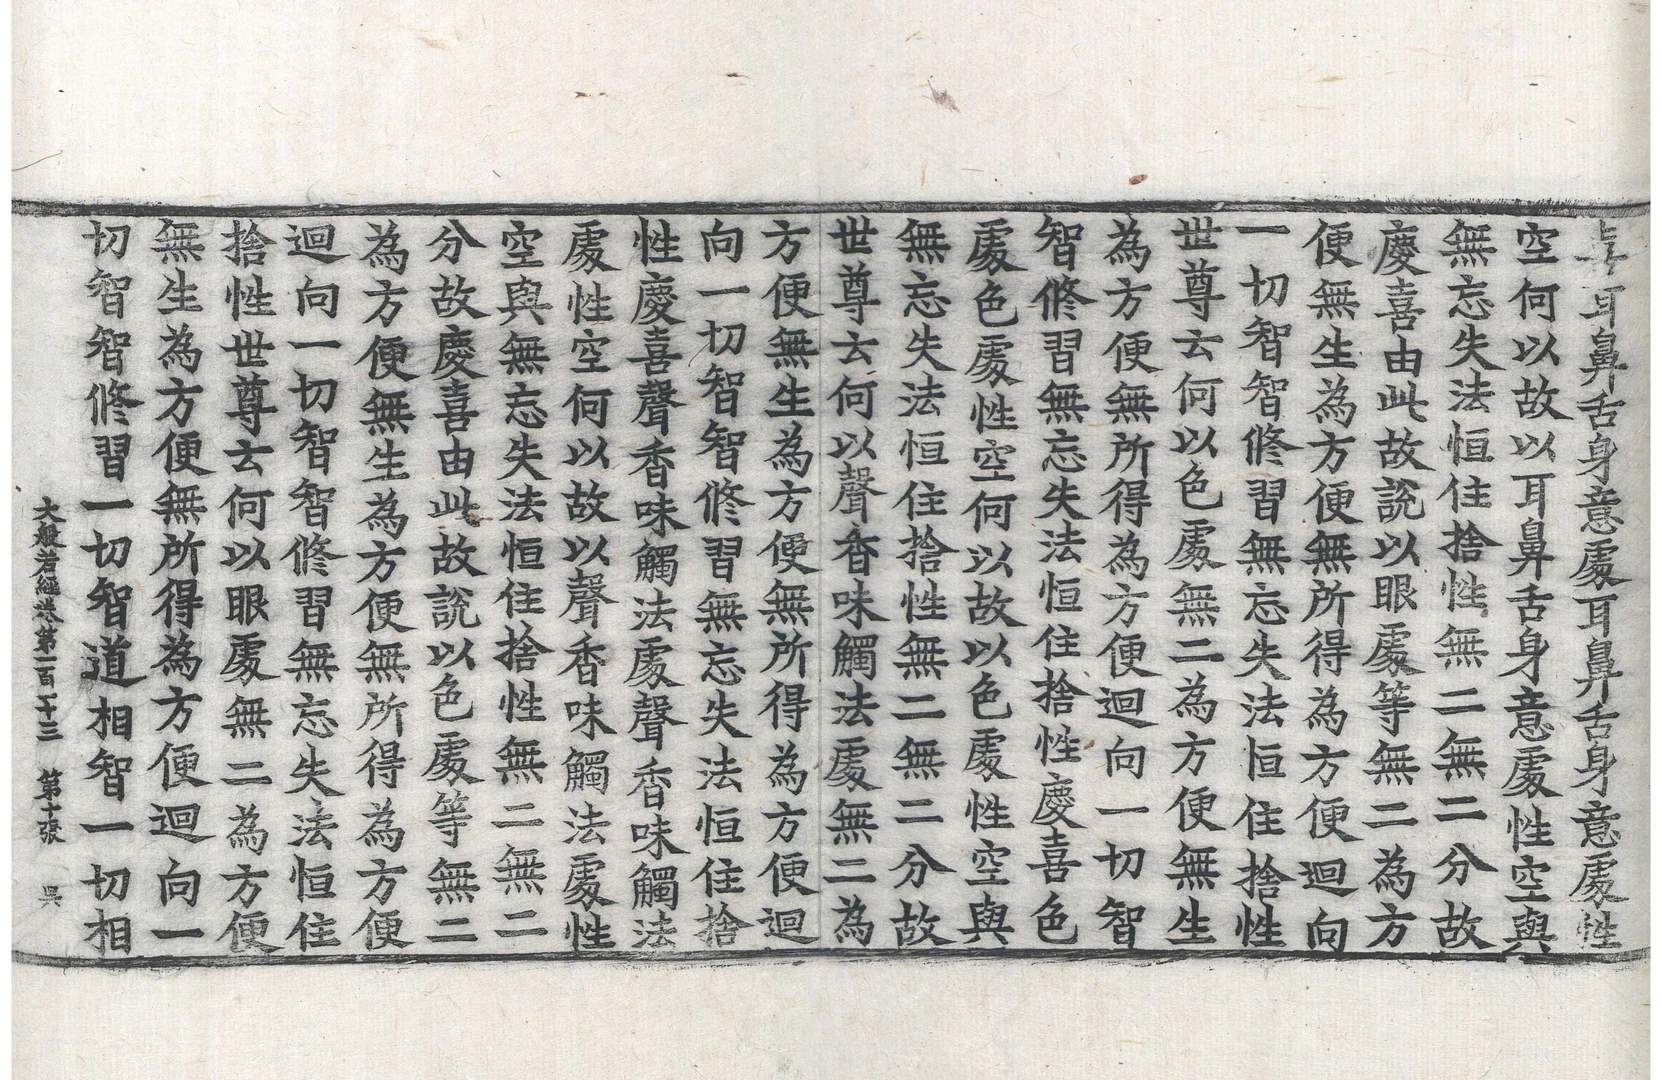 喜耳鼻舌身意處耳鼻舌身意處性
空何以故以耳鼻舌身意處性空與
無忘失法恒住捨性無二無二分故
慶喜由此故說以眼處等無二為方
便無生為方便無所得為方便迴向
一切智智修習無忘失法恒住捨性
世尊云何以色處無二為方便無生
為方便無所得為方便迴向一切智
智修習無忘失法恒住捨性慶喜色
處色處性空何以故以色處性空與
無忘失法恒住捨性無二無二分故
世尊云何以聲香味觸法處無二為
方便無生為方便無所得為方便迴
向一切智智修習無忘失法恒住捨
性慶喜聲香味觸法處聲香味觸法
處性空何以故以聲香味觸法處性
空與無忘失法恒住捨性無二無二
分故慶喜由此故說以色處等無二
為方便無生為方便無所得為方便
迴向一切智智修習無忘失法恒住
捨性世尊云何以眼處無二為方便
無生為方便無所得為方便迴向一
切智智修習一切智道相智一切相
大般若經卷第一百一十三 第十張 吳